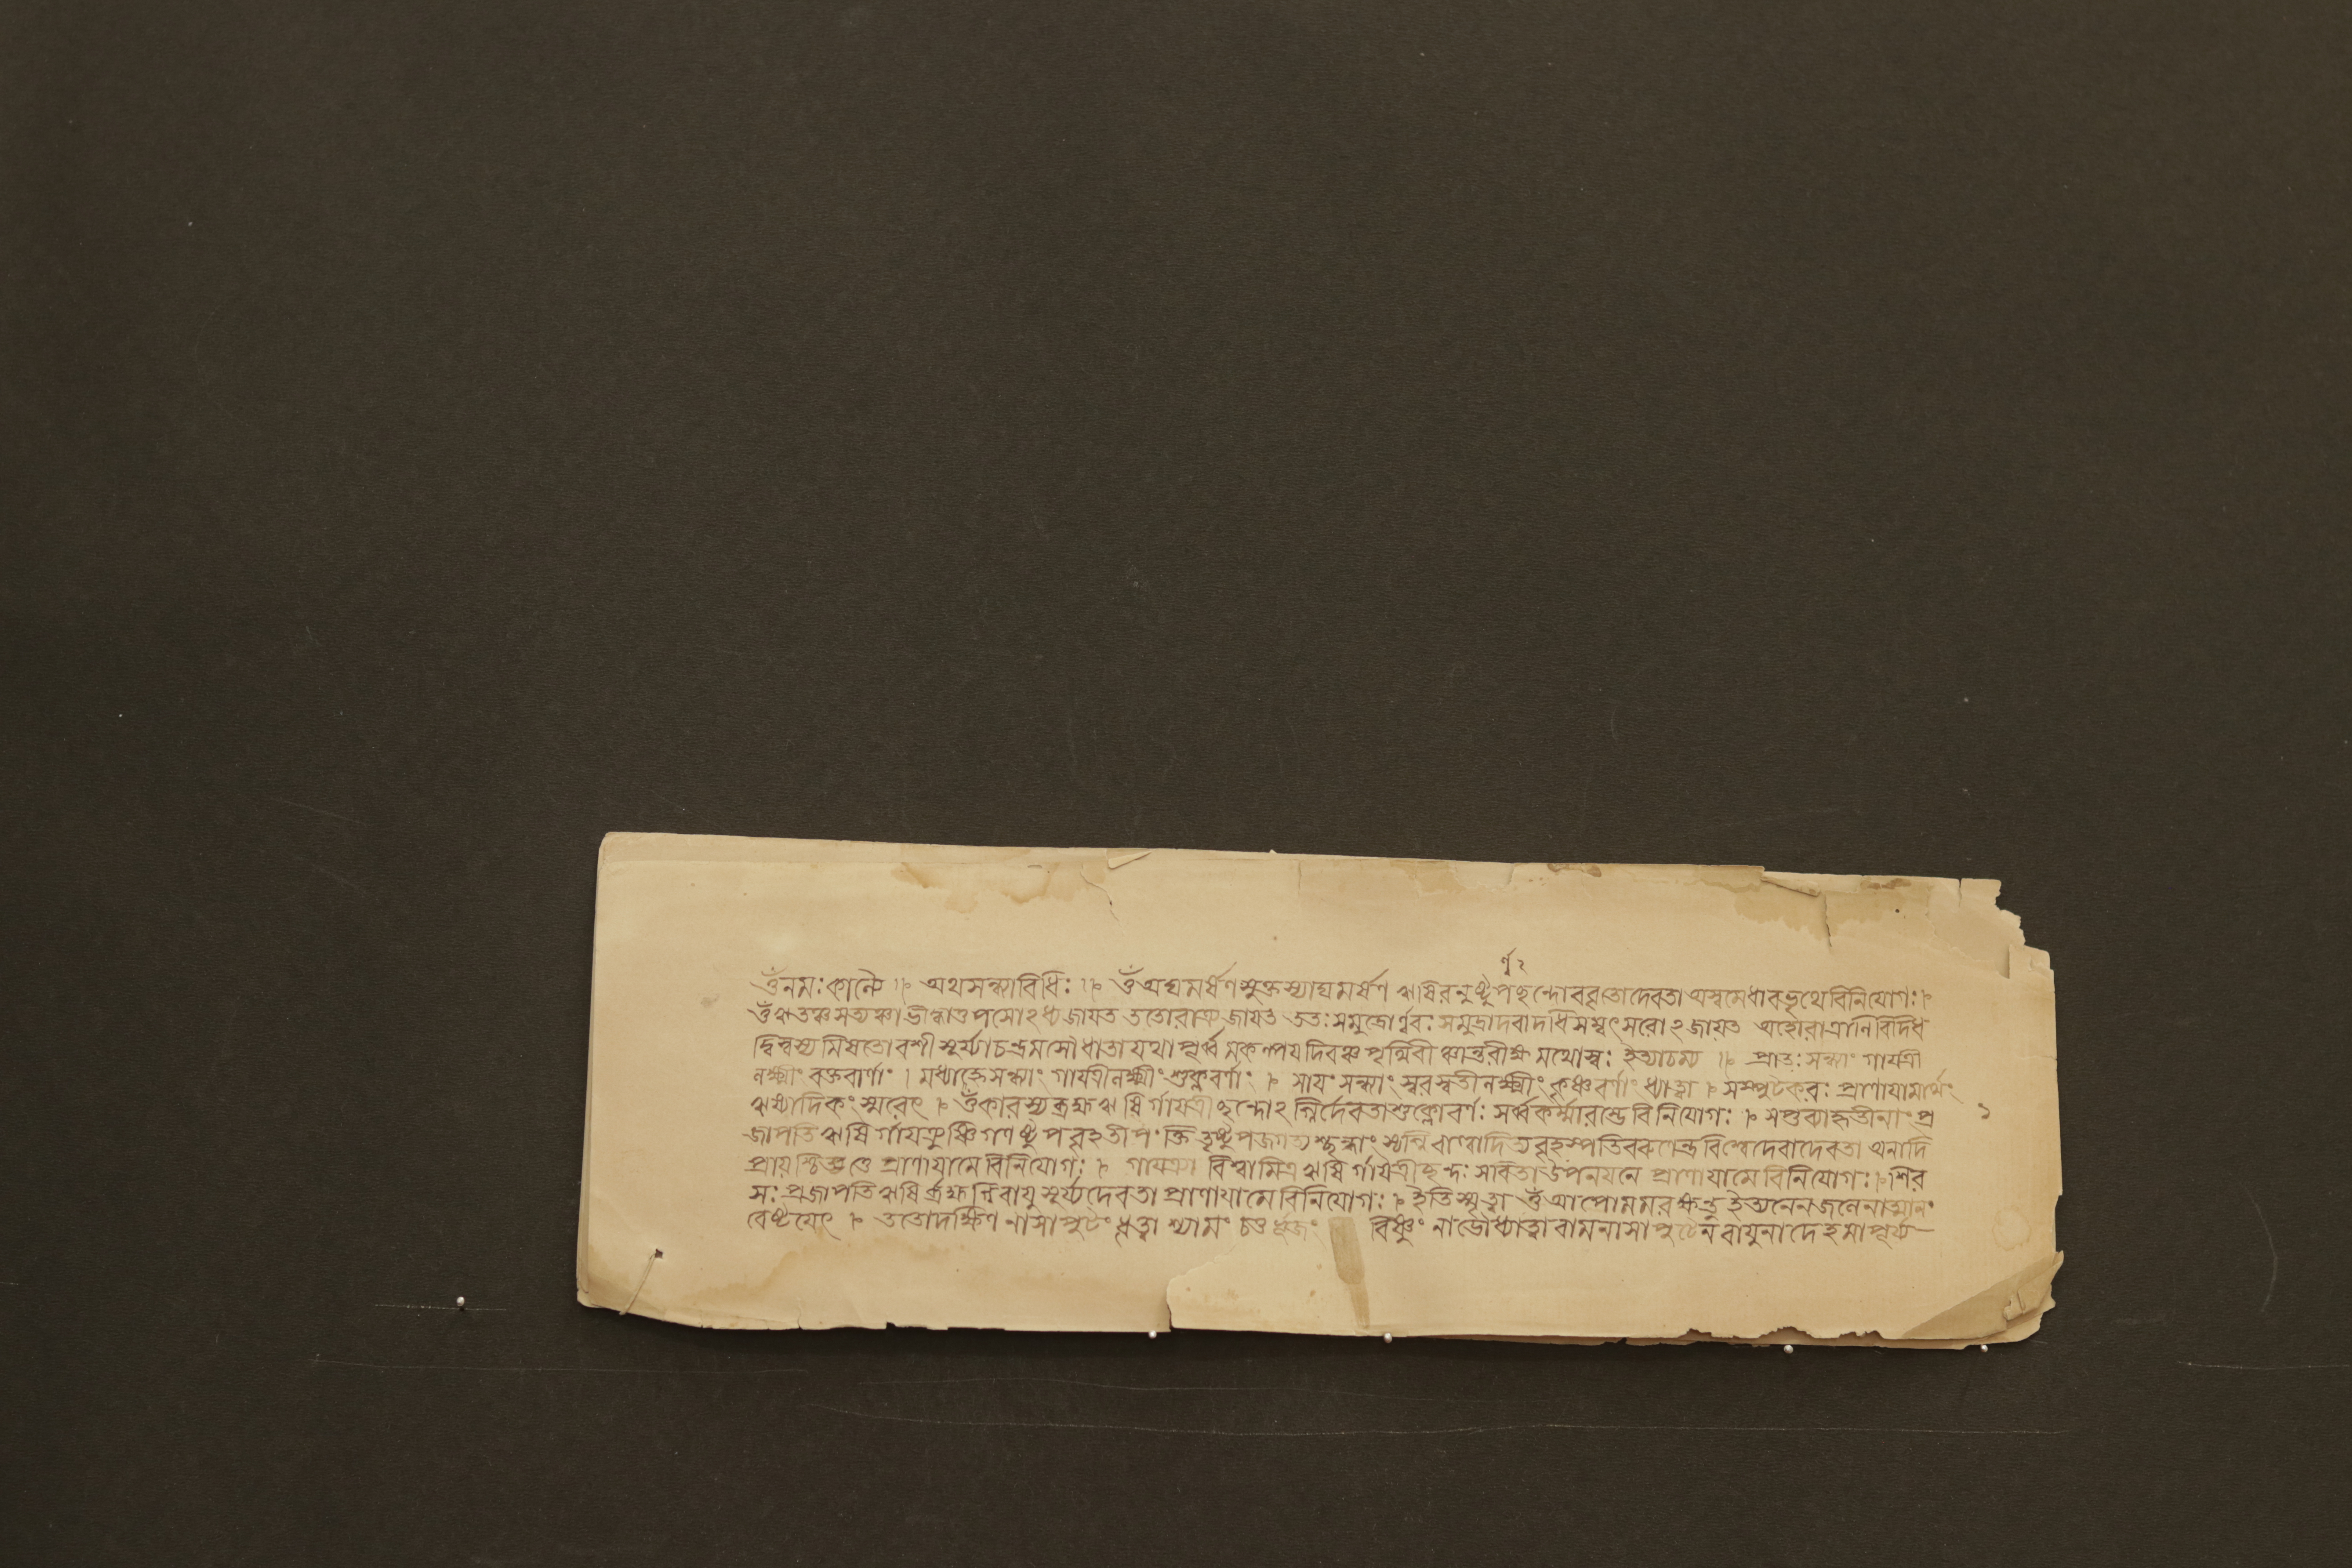 র্ণু ২
ওঁনমঃকাল্যৈ ।। অথসন্ধ্যাবিধিঃ ।। ওঁঅঘমর্ষণসুক্তস্যাঘমর্ষণ ঋষিরনুষ্টুপছন্দোবরুতোদেবতাঅস্বমেধাবভৃথেবিনিযোগঃ।
ওঁঋতঞ্চসত্যঞ্চাভীদ্ধাত্তপসোঽধ্যজাযত ততোরাত্র্যজাযত ততঃসমুদ্রোর্ণ্ণবঃ সমুদ্রাদর্ণবাদধিসম্বৎসরোঽজাযত অহোরাত্রানিবিদধি
দ্বিস্বস্য মিষতোবশী সূর্য্যাচন্দ্রমসৌধাতাযথাপূর্ব্ব মকল্পযদিবঞ্চ পৃথিবী ঞ্চান্তরীক্ষ মথোস্বঃ ইত্যাচম্য ।। প্রাতঃসন্ধ্যাং গাযত্রী
লক্ষ্মীং রক্তবার্ণাং । মধ্যাহ্নেসন্ধ্যাং গাযত্রীলক্ষ্মীং শুক্লবর্ণাং । সাযংসন্ধ্যাং স্বরস্বতীলক্ষ্মীং কৃষ্ণবর্ণাং ধ্যাত্বা । সম্পুটকরঃ প্রাণাযামার্থেং
ঋষ্যাদিকং স্মরেৎ । ওঁকারস্যব্রহ্মঋষি র্গাযত্রীছন্দোঽগ্নির্দেবতাশুক্লোবর্ণঃ সর্ব্বকর্ম্মারম্ভেবিনিযোগঃ । সপ্তব্যাহৃতীনাং প্র ১
জাপতিঋষি র্গাযত্র্যুষ্ণি গনুষ্টুপবৃহতীপংক্তি তৃষ্টুপজগত্যশ্ছন্দাং স্যগ্নি বায্বাদিত্যবৃহস্পতিবরুণেন্দ্রবিশ্বেদেবাদেবতা অনাদি
প্রাযশ্চিত্তে প্রাণাযামেবিনিযোগঃ । গাযত্র্যা বিশ্বামিত্রঋষি র্গাযত্রীছন্দঃ সবিতাউপনযনে প্রাণাযামেবিনিযোগঃ । শির
সঃ প্রজাপতিঋষি র্ব্রহ্মাগ্নিবাযুসূর্য্যদেবতা প্রাণাযামেবিনিযোগঃ । ইতিস্মৃত্বা ওঁআপোমমরক্ষন্তু ইত্যনেনজলেনাত্মানং
বেষ্টযেৎ । ততোদক্ষিণ নাসাপুটং ধৃত্বা শ্যামং চতুর্ভুজং বিষ্ণুং নাভৌধ্যাত্বাবামনাসাপুটেন বাযুনাদেহমাপূর্য্য—